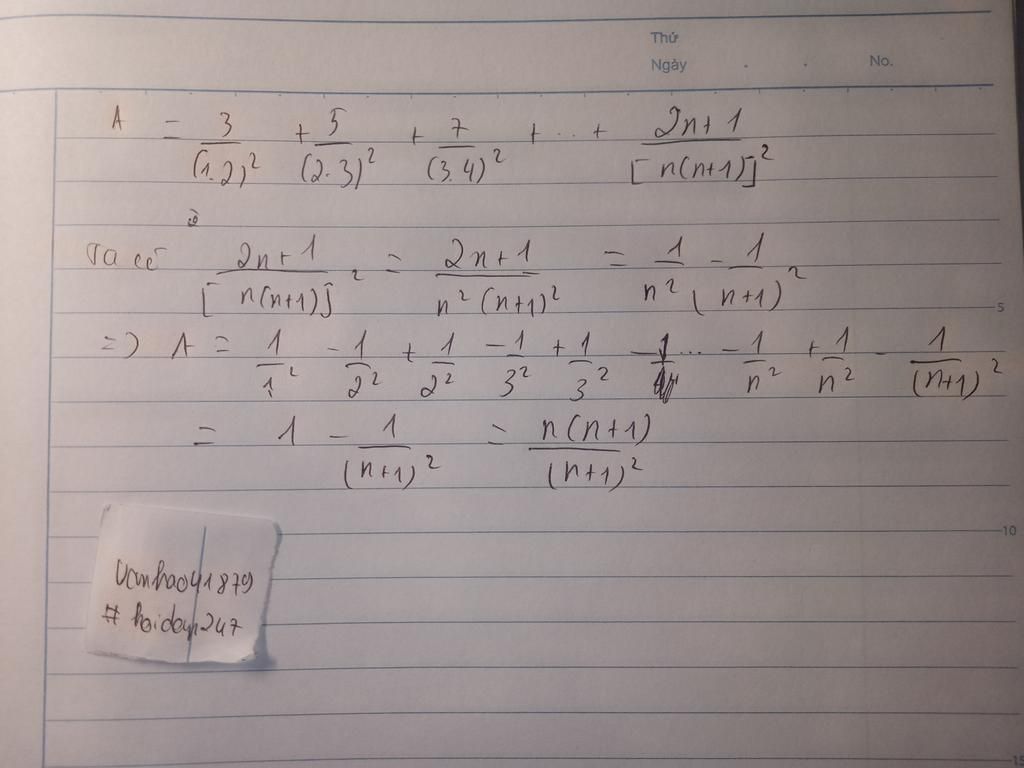 Thứ
Ngày . . No.
A = 3/(1.2)² + 5/(2.3)² + 7/(3.4)² + ... + 2n+1/[n(n+1)]²
Ta có 2n+1/[n(n+1)]² = 2n+1/n²(n+1)² = 1/n² - 1/(n+1)²
5
=) A = 1/1² - 1/2² + 1/2² - 1/3² + 1/3² - ... - 1/n² + 1/n² - 1/(n+1)²
= 1 - 1/(n+1)² = n(n+1)/(n+1)²
10
vanhao41879
# hoidap247
15